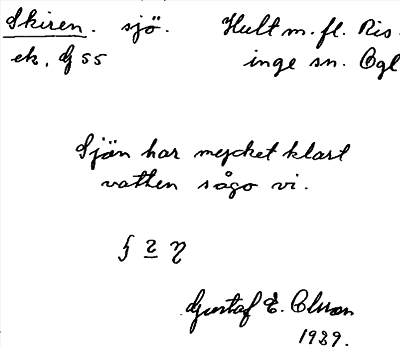 Skiren. sjö. Hult m. fl. Ris-
ek. G 55 inge sn. Ögl
Sjön har mycket klart
vatten sågo vi.
Gustaf E. Olsson
1939.